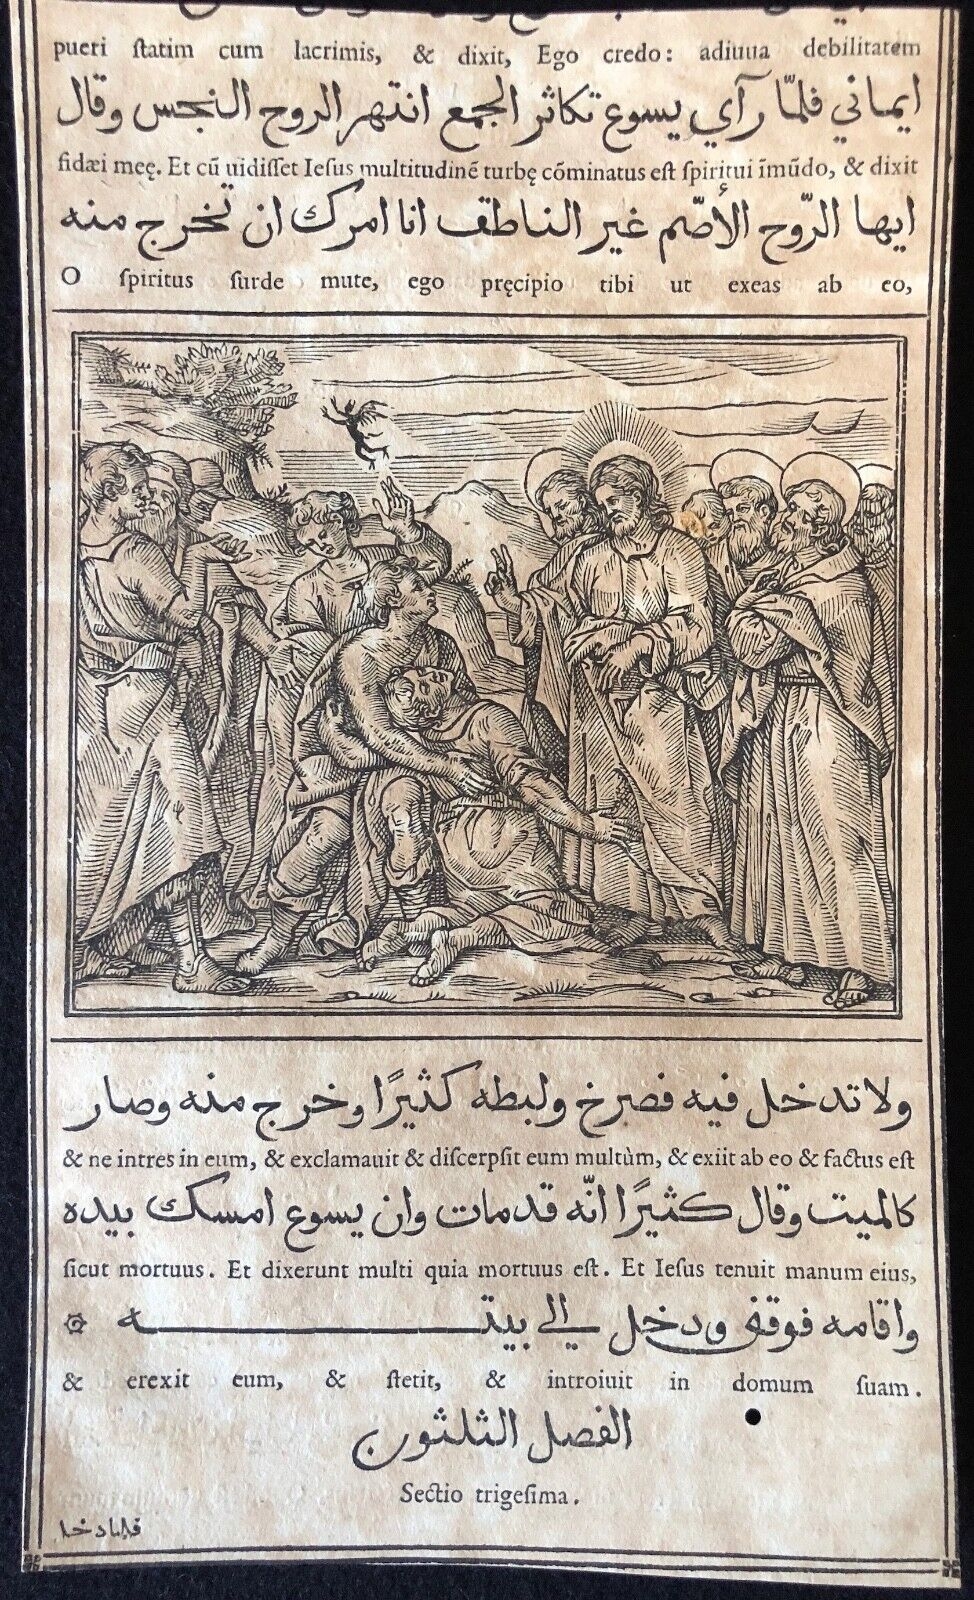 pueri ſtatim cum lacrimis, & dixit, Ego credo: adiuua debilitatem
ايماني فلمّا رآي يسوع تكاثر الجمع انتهر الروح النجس وقال
fidæi meę. Et cũ uidiſſet Ieſus multitudinẽ turbę cõminatus eſt ſpiritui ĩmũdo, & dixit
ايها الرّوح الأصّم غير الناطق انا امرك ان تخرج منه
O ſpiritus ſurde mute, ego pręcipio tibi ut exeas ab eo,
ولا تدخل فيه فصرخ ولبطه كثيرًا وخرج منه وصار
& ne intres in eum, & exclamauit & diſcerpſit eum multùm, & exiit ab eo & factus eſt
كالميت وقال كثيرًا انّه قد مات وان يسوع امسك بيده
ſicut mortuus. Et dixerunt multi quia mortuus eſt. Et Ieſus tenuit manum eius,
واقامه فوقف ودخل الي بيتـــه
& erexit eum, & ſtetit, & introiuit in domum ſuam.
الفصل الثلثون
Sectio trigeſima.
فلما دخل